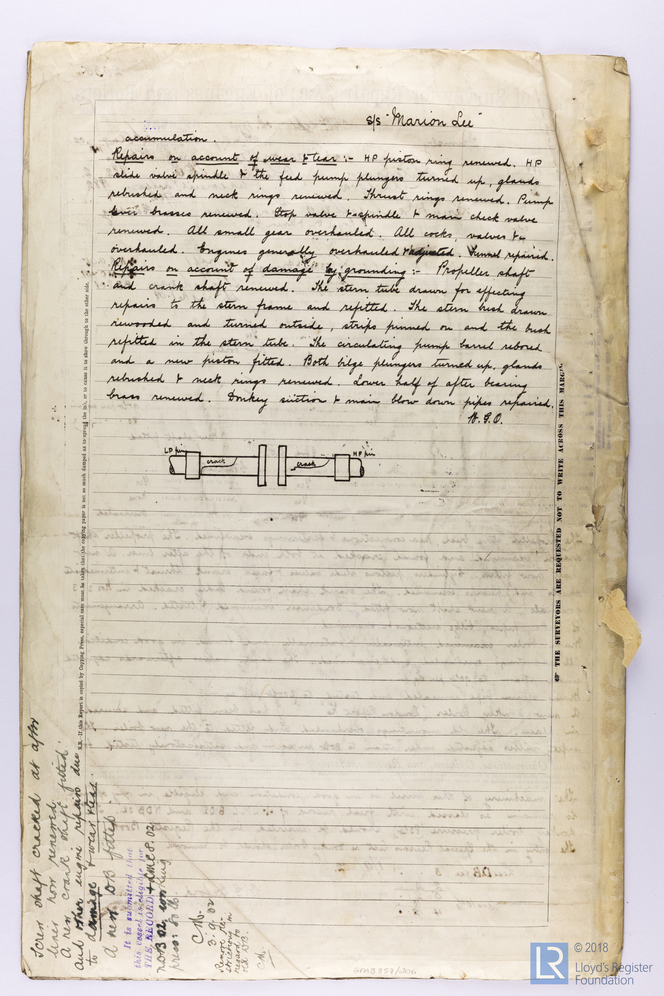 s/s "Marion Lee"
accumulation.
Repairs on account of wear & tear :- HP piston ring renewed. HP
slide valve spindle & the feed pump plungers turned up, glands
rebushed and neck rings renewed. Thrust rings renewed. Pump
lever brasses renewed. Stop valve & spindle & main check valve
renewed. All small gear overhauled. All cocks, valves &c
overhauled. Engines generally overhauled & adjusted. Funnel repaired.
Repairs on account of damage by grounding :- Propeller shaft
and crank shaft renewed. The stern tube drawn for effecting
repairs to the stern frame and refitted. The stern bush drawn
rewooded and turned outside, strips pinned on and the bush
refitted in the stern tube. The circulating pump barrel rebored
and a new piston fitted. Both bilge plungers turned up, glands
rebushed & neck rings renewed. Lower half of after bearing
brass renewed. Donkey suction & main blow down pipes repaired.
LP pin
crack
crack
HP pin
N.B.-If this Report is copied by Copying Press, especial care must be taken that the copying paper is not so much damped as to spread the ink, or to cause it to show through to the other side.
THE SURVEYORS ARE REQUESTED NOT TO WRITE ACROSS THIS MARGIN
Screw shaft cracked at after
liner now renewed.
A new crank shaft fitted.
and other engine repairs due
to damage & wear & tear.
A new DB fitted
It is submitted that
this vessel is eligible for
THE RECORD + LMC 8.02
NDB 02, working
press: 80 lb
3.9.02
© 2018
LR
Lloyd's Register
Foundation